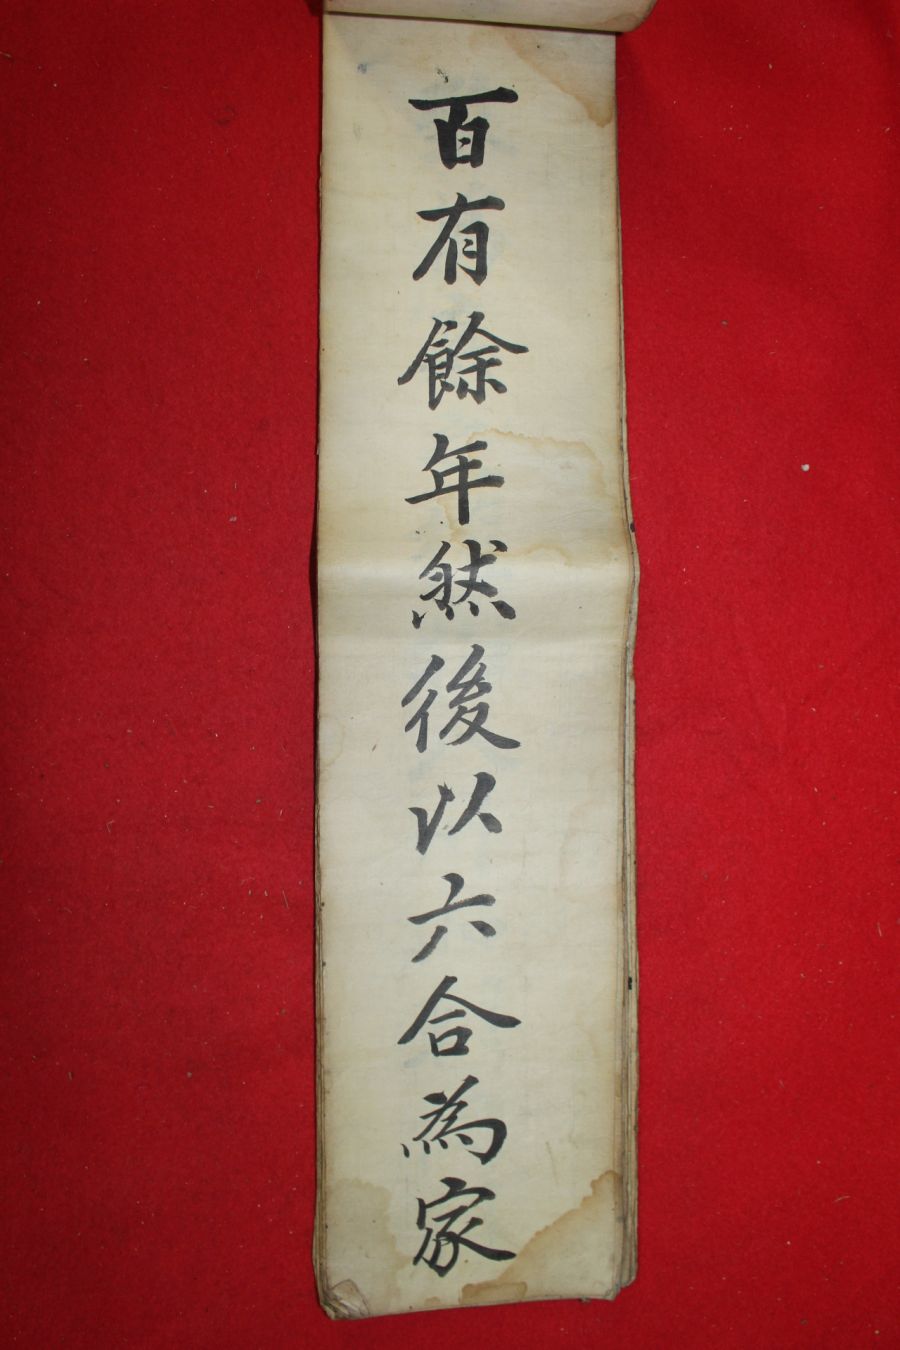 百有餘年然後以六合為家